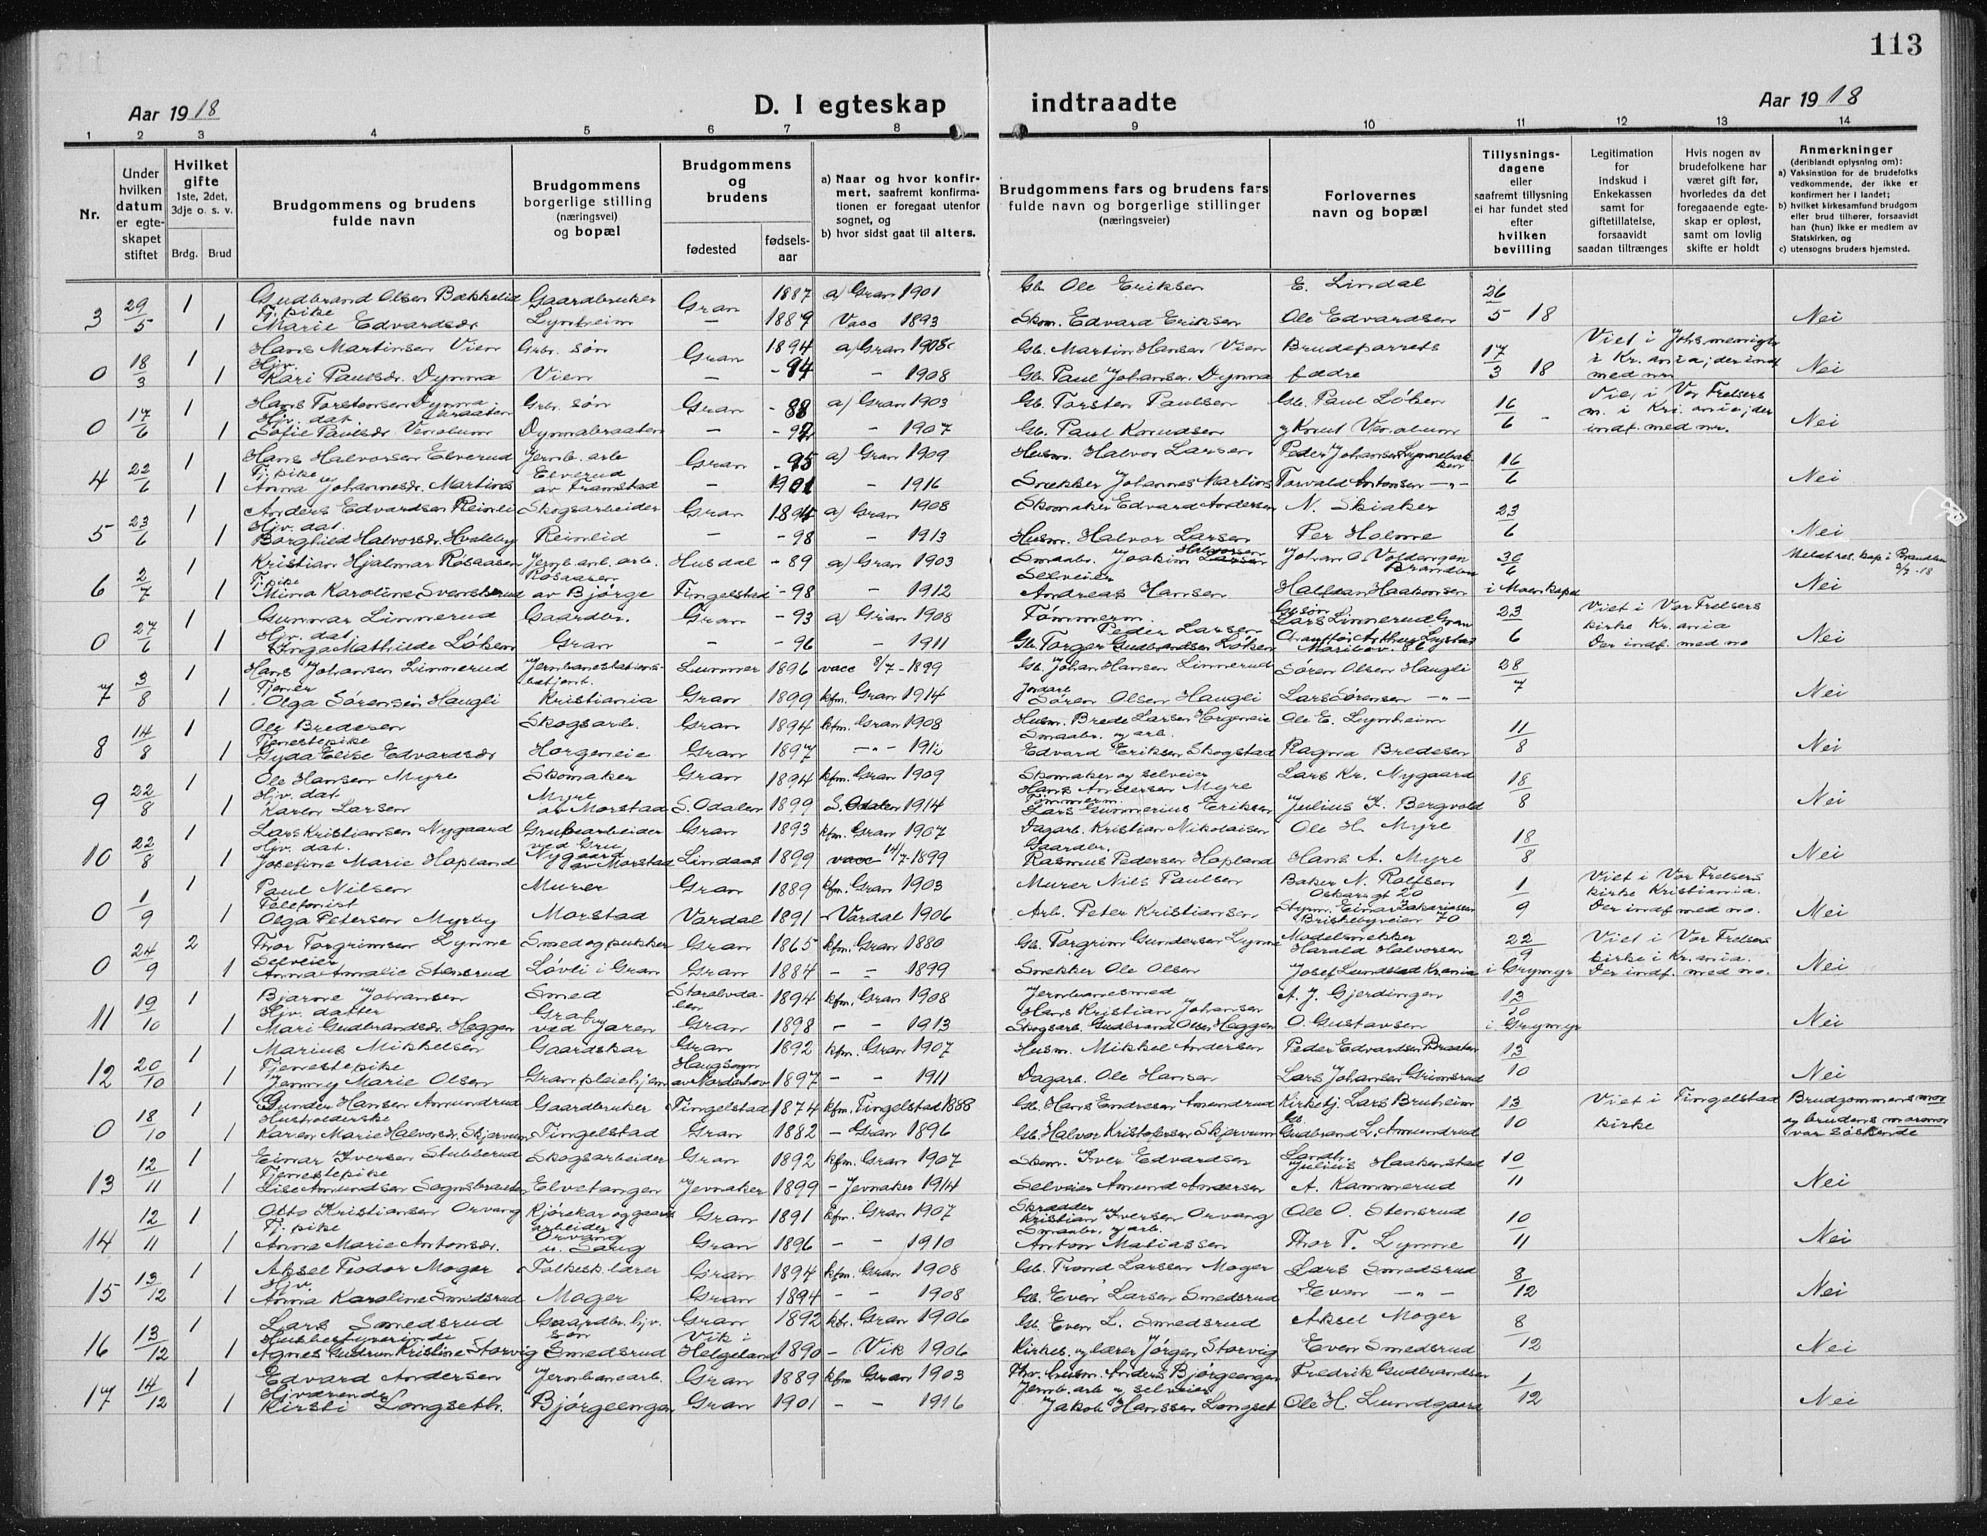 113
Aar 1918
D. I egteskap indtraadte
Aar 1918
1 2 3 4 5 6 7 8 9 10 11 12 13 14
Nr.
Under hvilken datum er egteskapet stiftet
Hvilket gifte
1ste, 2det, 3dje o. s. v.
Brdg. Brud
Brudgommens og brudens fulde navn
Brudgommens borgerlige stilling (næringsvei) og bopæl
Brudgommens og brudens
fødested
fødselsaar
a) Naar og hvor konfirmert, saafremt konfirmationen er foregaat utenfor sognet, og
b) hvor sidst gaat til alters.
Brudgommens fars og brudens fars fulde navn og borgerlige stillinger (næringsveier)
Forlovernes navn og bopæl
Tillysningsdagene eller saafremt tillysning ei har fundet sted efter hvilken bevilling
Legitimation for indskud i Enkekassen samt for giftetillatelse, forsaavidt saadan tiltrænges
Hvis nogen av brudefolkene har været gift før, hvorledes da det foregaaende egteskap er opløst, samt om lovlig skifte er holdt
Anmerkninger
(deriblandt oplysning om):
a) Vaksinstion for de brudefolks vedkommende, der ikke er konfirmert her i landet;
b) hvilket kirkesamfund brudgom eller brud tilhører, forsaavidt han (hun) ikke er medlem av Statskirken, og
c) utensogns bruders hjemsted.
3 29/5 1 Gudbrand Olsen Bakkelid Gaardbruker Gran 1887 a) Gran 1901 Gb. Ole Eriksen E. Lindal 26/5 18
Tj. pike
1 Marie Edvardsdr. Lynheim — 1889 Vacc 1893 Skom. Edvard Eriksen Ole Edvardsen Nei
0 18/3 1 Hans Martinsen Vien Grbr. søn Gran 1894 a) Gran 1908 Gb. Martin Hansen Vien Brudeparrets 17/3 18 Viet i
i Kr.ania; der indf.
Hjv.
1 Kari Paulsdr. Dynna Vien — -94 — 1908 Gb. Paul Johansen Dynna fædre med nr. Nei
0 17/6 1 Hans Torstensen Dynnabraaten Grbr. søn Gran -88 a) Gran 1903 Gb. Torsten Paulsen Gb. Paul Løken 16/6 - Viet i Vor Frelsers
k. i Kri.ania; der
Hjv. dat.
1 Sofie Paulsdr. Dynnabraaten — -92 — 1907 Gb. Paul Knudsen indf. med nr. Nei
4 22/6 1 Hans Halvorsen Elverud Jernb. arb. Gran -95 a) Gran 1909 Husm. Halvor Larsen Peder Johansen 16/6
Tj. pike Elverud
1 Anna Johannesdr. Martins av Framstad — 1901 — 1916 Snekker Johannes Martins Torvald Antonsen —"— Nei
5 23/6 1 Anders Edvardsen Reinli Skogsarbeider Gran 1895 a) Gran 1908 Skomaker Edvard Andersen N. Skiaker 23/6
Hjv. dat.
1 Borghild Halvorsdr. Hvaleby Reinlid — -98 — 1913 Husm. Halvor Larsen Per Holme Nei
6 2/7 1 Kristian Hjalmar Rosaasen Jernb. anl. arb. Husdal -89 a) Gran 1903 Smaabr. Joakim Halvorsen Johan O. Voldengen 30/6
Tj. pike Rosaasen Selveier Brandbu
1 Mina Karoline Svensbrud av Bjørge Tingelstad -98 — 1912 Andreas Hansen Halfdan Haakonsen i Moen kapel Nei
0 27/6 1 Gunnar Linnerud Gaardbr. Gran -93 a) Gran 1908 Tømmerm. Lars Linnerud Gran 23/6 Viet i Vor Frelsers
Hjv. dat. Peder Larsen kirke Kr.ania
1 Inga Mathilde Løken Gran — -96 — 1911 Gb. Torger Gudbrandsen Løken Maribov. 86 Der indf. med no Nei
7 3/8 1 Hans Johansen Linnerud Jernbanestationsbetjent. Lunner 1896 vacc 8/7-1899 Gb. Johan Hansen Linnerud Søren Olsen Haugli 28/7
Tjener Jordarb.
1 Olga Sørensen Haugli Kristiania Gran 1899 kfm. Gran 1914 Søren Olsen Haugli Lars Sørensen —"— Nei
8 14/8 1 Ole Bredesen Skogsarb. Gran 1894 kfm. Gran 1908 Husm. Brede Larsen Horgeneie Ole E. Lynheim 11/8
Tjenestepike Smaabr. og arb.
1 Gyda Elise Edvardsdr. Horgeneie Gran 1897 —"— 1912 Edvard Eriksen Skogstad Ragna Bredesen Nei
9 22/8 1 Ole Hansen Myre Skomaker Gran 1894 kfm. Gran 1909 Skomaker og selveier Lars Kr. Nygaard 18/8
Hjv. dat. Myre Hans Andersen Myre
Tømmerm.
1 Karen Larsen av Morstad S. Odalen 1899 S. Odalen 1914 Lars Gunnerius Eriksen Julius J. Bergvold Nei
10 22/8 1 Lars Kristiansen Nygaard Grubearbeider Gran 1893 kfm. Gran 1907 Dagarb. Kristian Nikolaisen Ole H. Myre 18/8
Hjv. dat. ved Grua Gaardbr.
1 Josefine Marie Hopland Nygaard av Morstad Lindaas 1899 vacc 14/7-1899 Rasmus Pedersen Hopland Hans A. Myre Nei
0 1/9 1 Paul Nilsen Murer Gran 1889 kfm. Gran 1903 Murer Nils Paulsen Baker N. Rolfsen 1/9 Viet i Vor Frelsers
Telefonist Oskarsgt 20 kirke Kristiania.
1 Olga Petersen Myrby Morstad Vardal 1891 - Vardal 1906 Arb. Peter Kristiansen Styrm. Einar Zakariassen Briskebyveien 70 Der indf. med no. Nei
0 24/9 2 Thor Torgrimsen Lynne Smed og pukker Gran 1865 kfm. Gran 1880 Gb. Torgrim Gundersen Lynne Modelsnekker Harald Halvorsen 22/9 Viet i Vor Frelsers
Selveier kirke i Kr.ania.
1 Anna Amalie Stensrud Løvli i Gran Gran 1884 — — 1899 Snekker Ole Olsen Josef Lundstad Kr.ania i Grymyr Der indf. med no. Nei
11 19/10 1 Bjarne Johansen Smed 1894 kfm. Gran 1908 Jernbanesmed A. J. Gjerdingen 13/10
Hjv. datter Hans Kristian Johansen
1 Mari Gudbrandsdr. Heggen ved Jaren Gran 1898 — — 1913 Skogsarb. Gudbrand Olsen Heggen O. Gustavsen i Grymyr Nei
12 20/10 1 Marius Mikkelsen Gaardskar Gran 1892 kfm. Gran 1907 Husm. Mikkel Andersen Peder Edvardsen Braaten 13/10
Tjenestepike Haugsogn
1 Jenny Marie Olsen Gran pleiehjem av Norderhov 1897 — — 1911 Dagarb. Ole Hansen Lars Johansen Grinsrud Nei
0 18/10 1 Gunder Hansen Amundrud Gaardbruker Tingelstad 1874 kfm. Tingelstad 1888 Gb. Hans Endresen Amundrud Kirketj. Lars Bruheim 13/10 Viet i Tingelstad kirke Brudgommens mor
Husholderske og brudens mormor
1 Karen Marie Halvorsdr. Skjervum Tingelstad Gran 1882 - Gran 1896 Gb. Halvor Kristofersen Skjervum Gudbrand L. Amundrud var søskende
13 12/11 1 Einar Iversen Stubberud Skogsarbeider Gran 1892 kfm. Gran 1907 Skom. Iver Edvardsen Landh. Julius Haakenstad 10/11
Tjenestepike
1 Lise Amundsen Sognsbraaten Elvetangen Jevnaker 1899 - Jevnaker 1914 Selveier Amund Andersen A. Kammerud Nei
14 12/11 1 Otto Kristiansen Orvang Kjørekar og gaardsarbeider Gran 1891 kfm. Gran 1907 Skrædder Kristian Iversen Orvang Ole O. Stensrud 10/11
Tj. pike Orvang Smaabr. og arb.
1 Anna Marie Antonsdr. u. Saug Gran 1896 — — 1910 Anton Matiassen Thor T. Lynne Nei
15 13/12 1 Aksel Teodor Moger Folkesk.lærer Gran 1894 kfm. Gran 1908 Gb. Trond Larssen Moger Lars Smedsrud 8/12
Hjv.
1 Anna Karoline Smedsrud Moger Gran 1894 — — 1908 Gb. Even Larsen Smedsrud Even —"— Nei
16 13/12 1 Lars Smedsrud Gaardbr. hjv. søn Gran 1892 kfr. Gran 1906 Gb. Even L. Smedsrud Aksel Moger 8/12
Husbestyrerinde Vik i
1 Agnes Gudrun Kristine Storvig Smedsrud Helgeland 1890 - Vik 1906 Kirkes. og lærer Jørgen Storvig Even Smedsrud Nei
17 14/12 1 Edvard Andersen Jernbanearb. Gran 1889 kfm Gran 1903 Anders Bjørgeengen Fredrik Gudbrandsen 1/12
Hjværende Jernb. arb og selveier
1 Kirsti Longseth. Bjørgeengen Gran 1901 — — 1916 Jakob Hanssen Longset Ole H. Lundgaard Nei